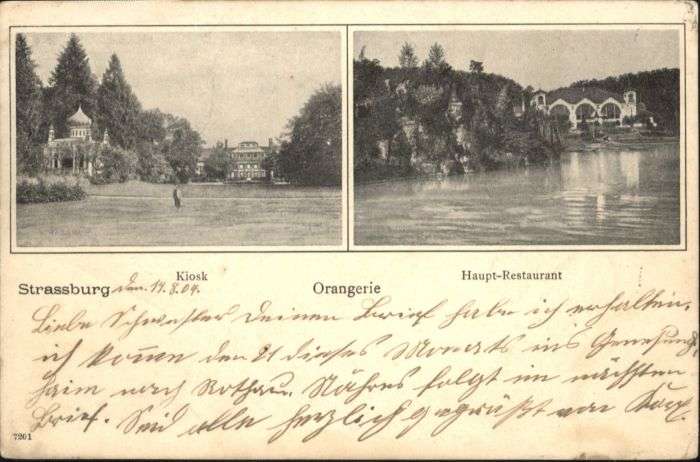 Kiosk
Haupt-Restaurant
Strassburg den 14.8.04. Orangerie
Liebe Schwester Deinen Brief habe ich erhalten,
ich komme den 21 dieses Monats ins Genesungs
haim nach Rothau. Nähres folgt im nächsten
Brief. Seid alle herzlich gegrüßt von Karl.
7261